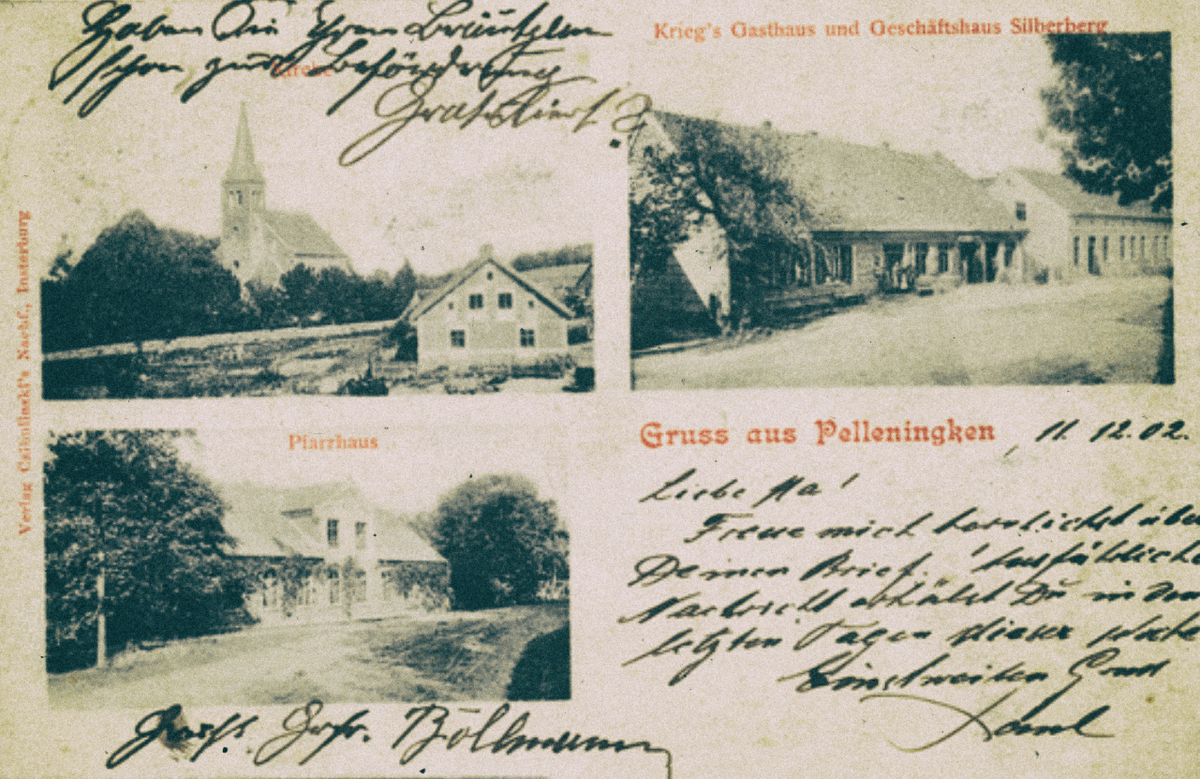 Haben Sie Ihrem Bräutchen
schon zur Beförderung
Gratuliert?
Kirche
Krieg's Gasthaus und Geschäftshaus Silberberg
Verlag Nachf., Insterburg
Pfarrhaus
Gruss aus Pelleningken, 11. 12. 02.
Liebe Ma!
Freue mich herzlichst über
Deinen Brief. Ausführliche
Nachricht erhälst Du in den
letzten Tagen dieser Woche
Einstweilen Gruß
Paul
Böllmann